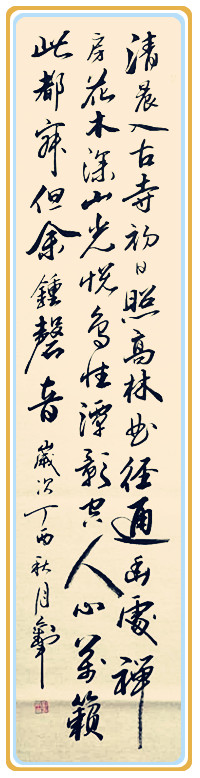 清晨入古寺初日照高林曲徑通幽處禪
房花木深山光悦鳥性潭影空人心萬籟
此都寂但余鍾磬音歲次丁酉秋月